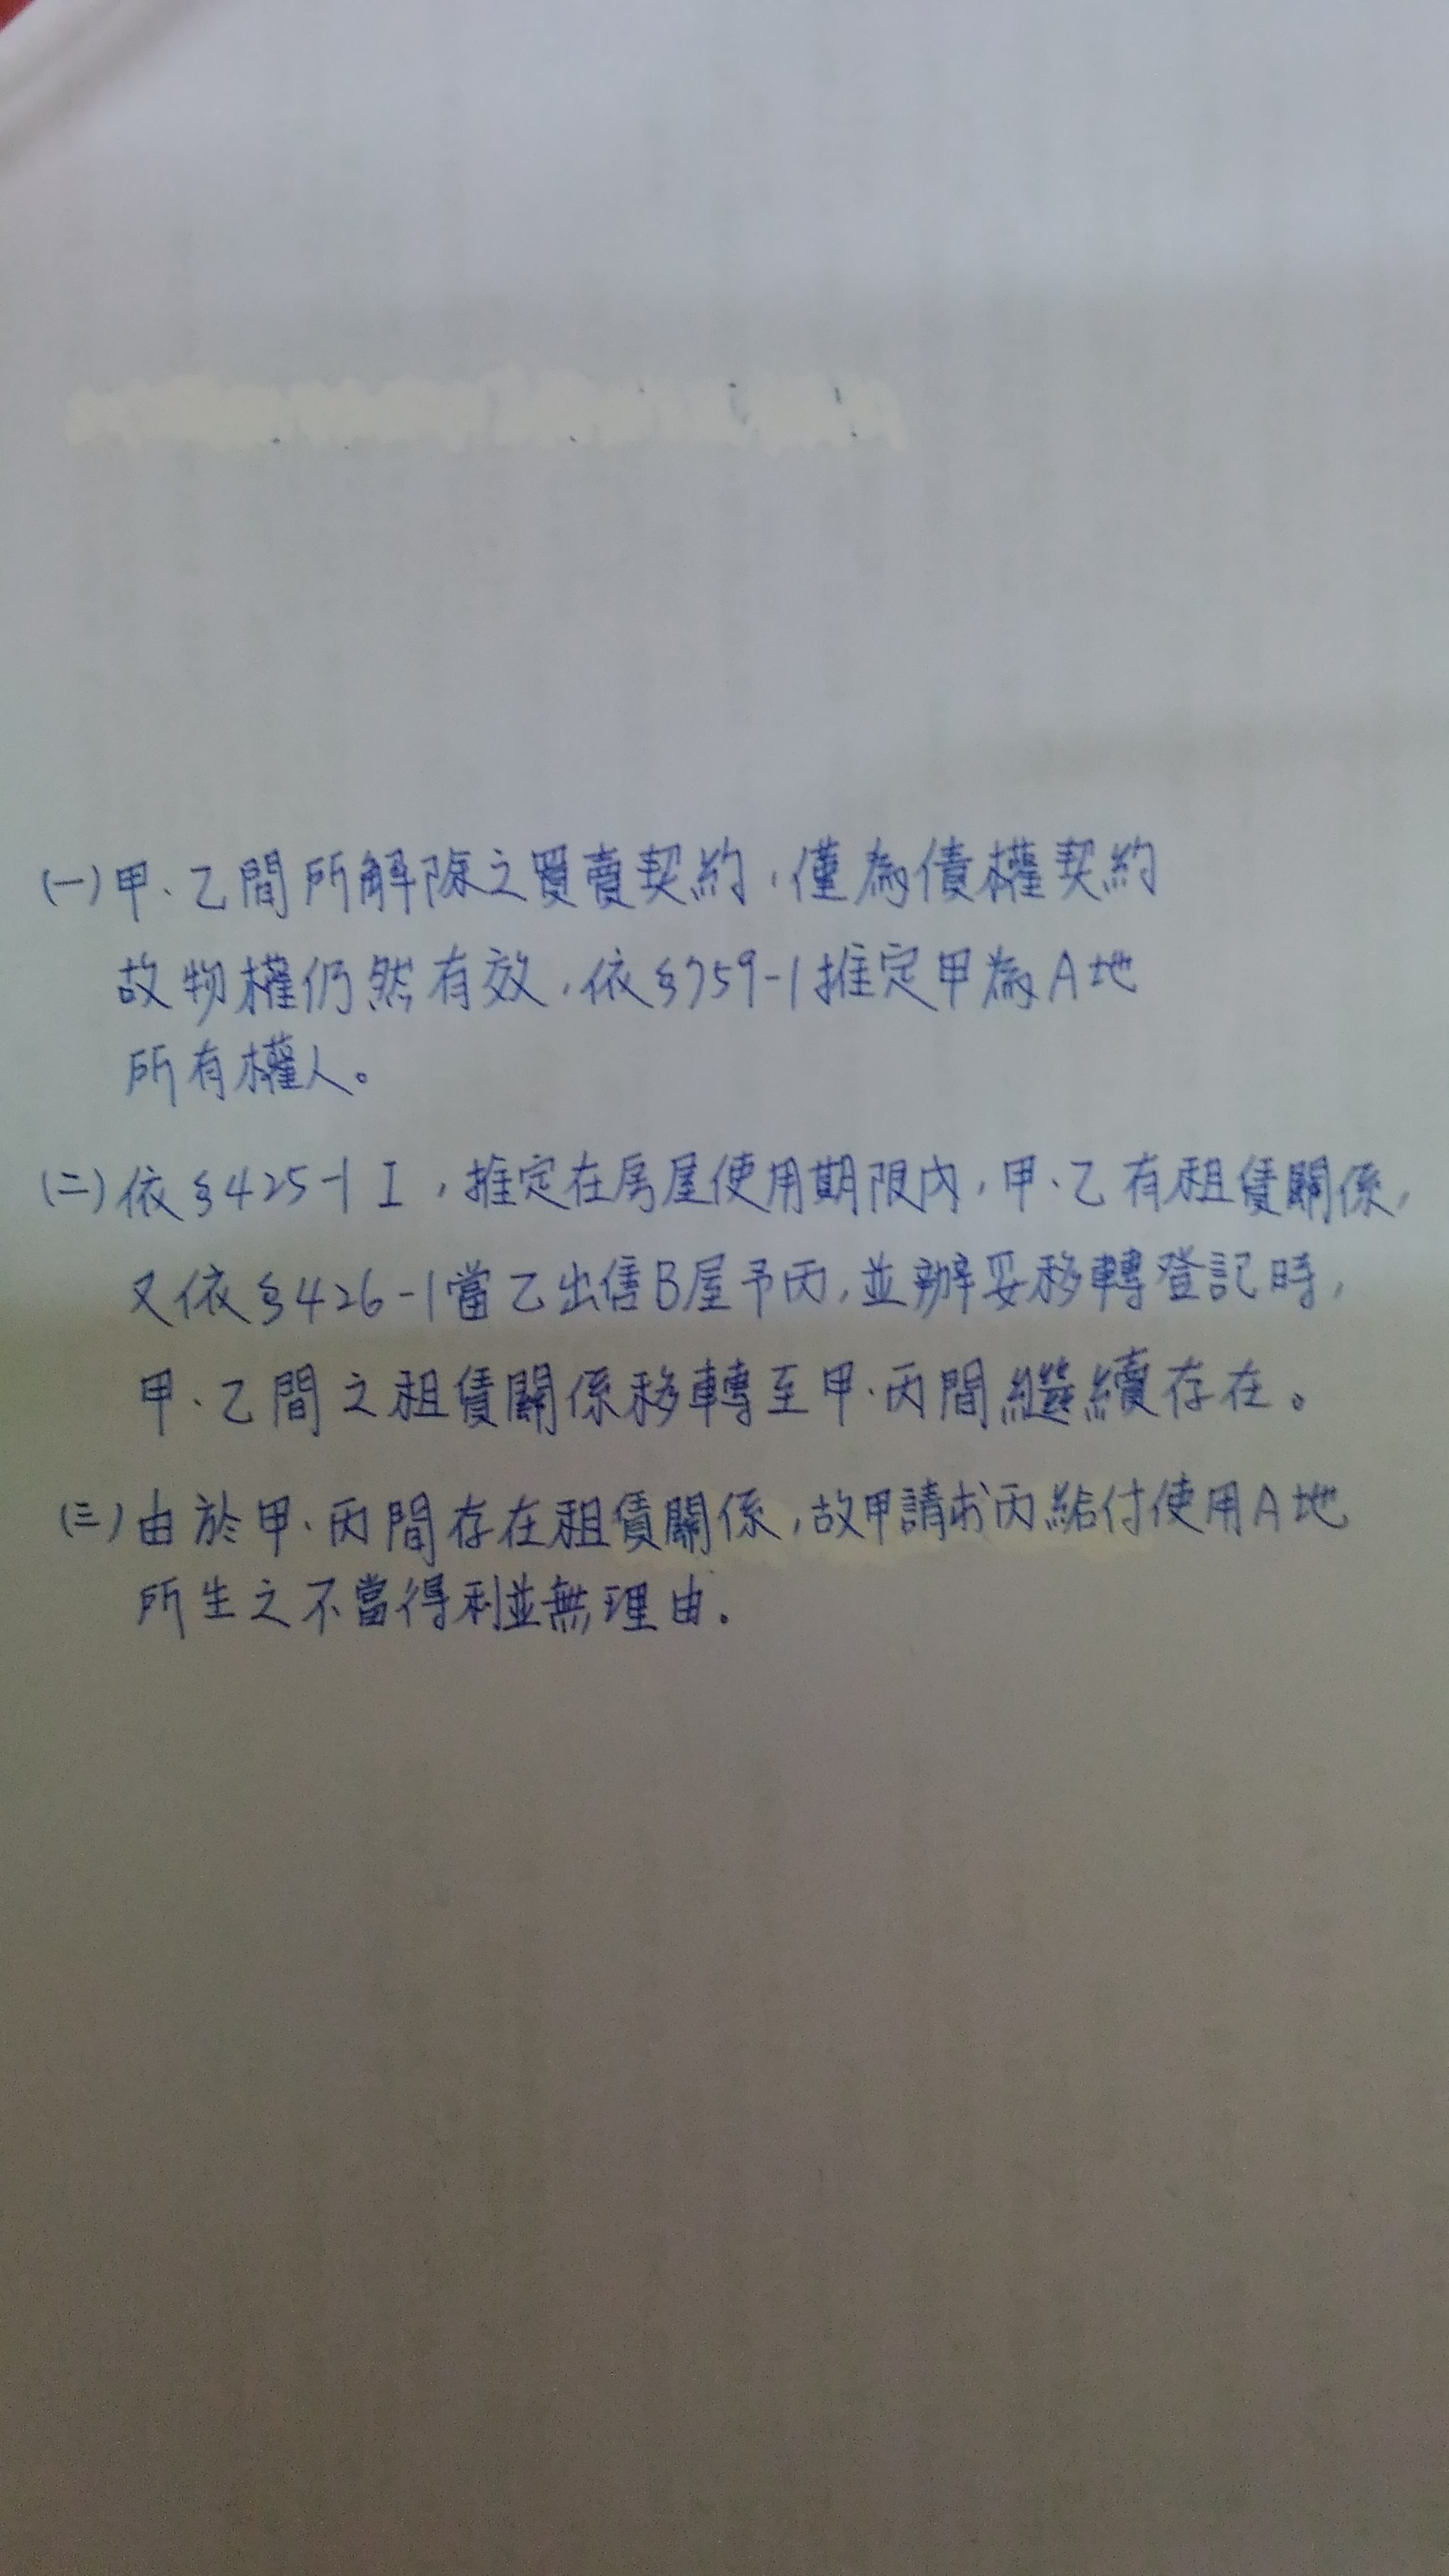 (一)甲、乙間所解除之買賣契約,僅為債權契約
故物權仍然有效,依§759-1推定甲為A地
所有權人。
(二)依§425-1 I,推定在房屋使用期限內,甲、乙有租賃關係,
又依§426-1當乙出售B屋予丙,並辦妥移轉登記時,
甲、乙間之租賃關係移轉至甲、丙間繼續存在。
(三)由於甲、丙間存在租賃關係,故甲請求丙給付使用A地
所生之不當得利並無理由。